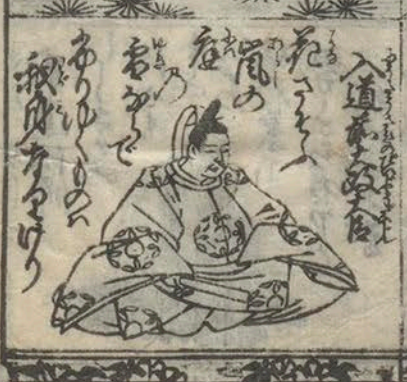 入道前太政大臣
花さそふ
嵐の
庭
乃
雪ならで
ふりゆくものハ
我身なりけり